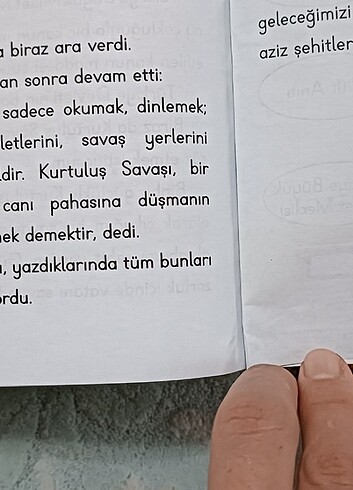 biraz ara verdi.
sonra devam etti:
sadece okumak, dinlemek;
savaş yerlerini
Kurtuluş Savaşı, bir
canı pahasına düşmanın
demektir, dedi.
yazdıklarında tüm bunları
geleceğimizi
aziz şehitler